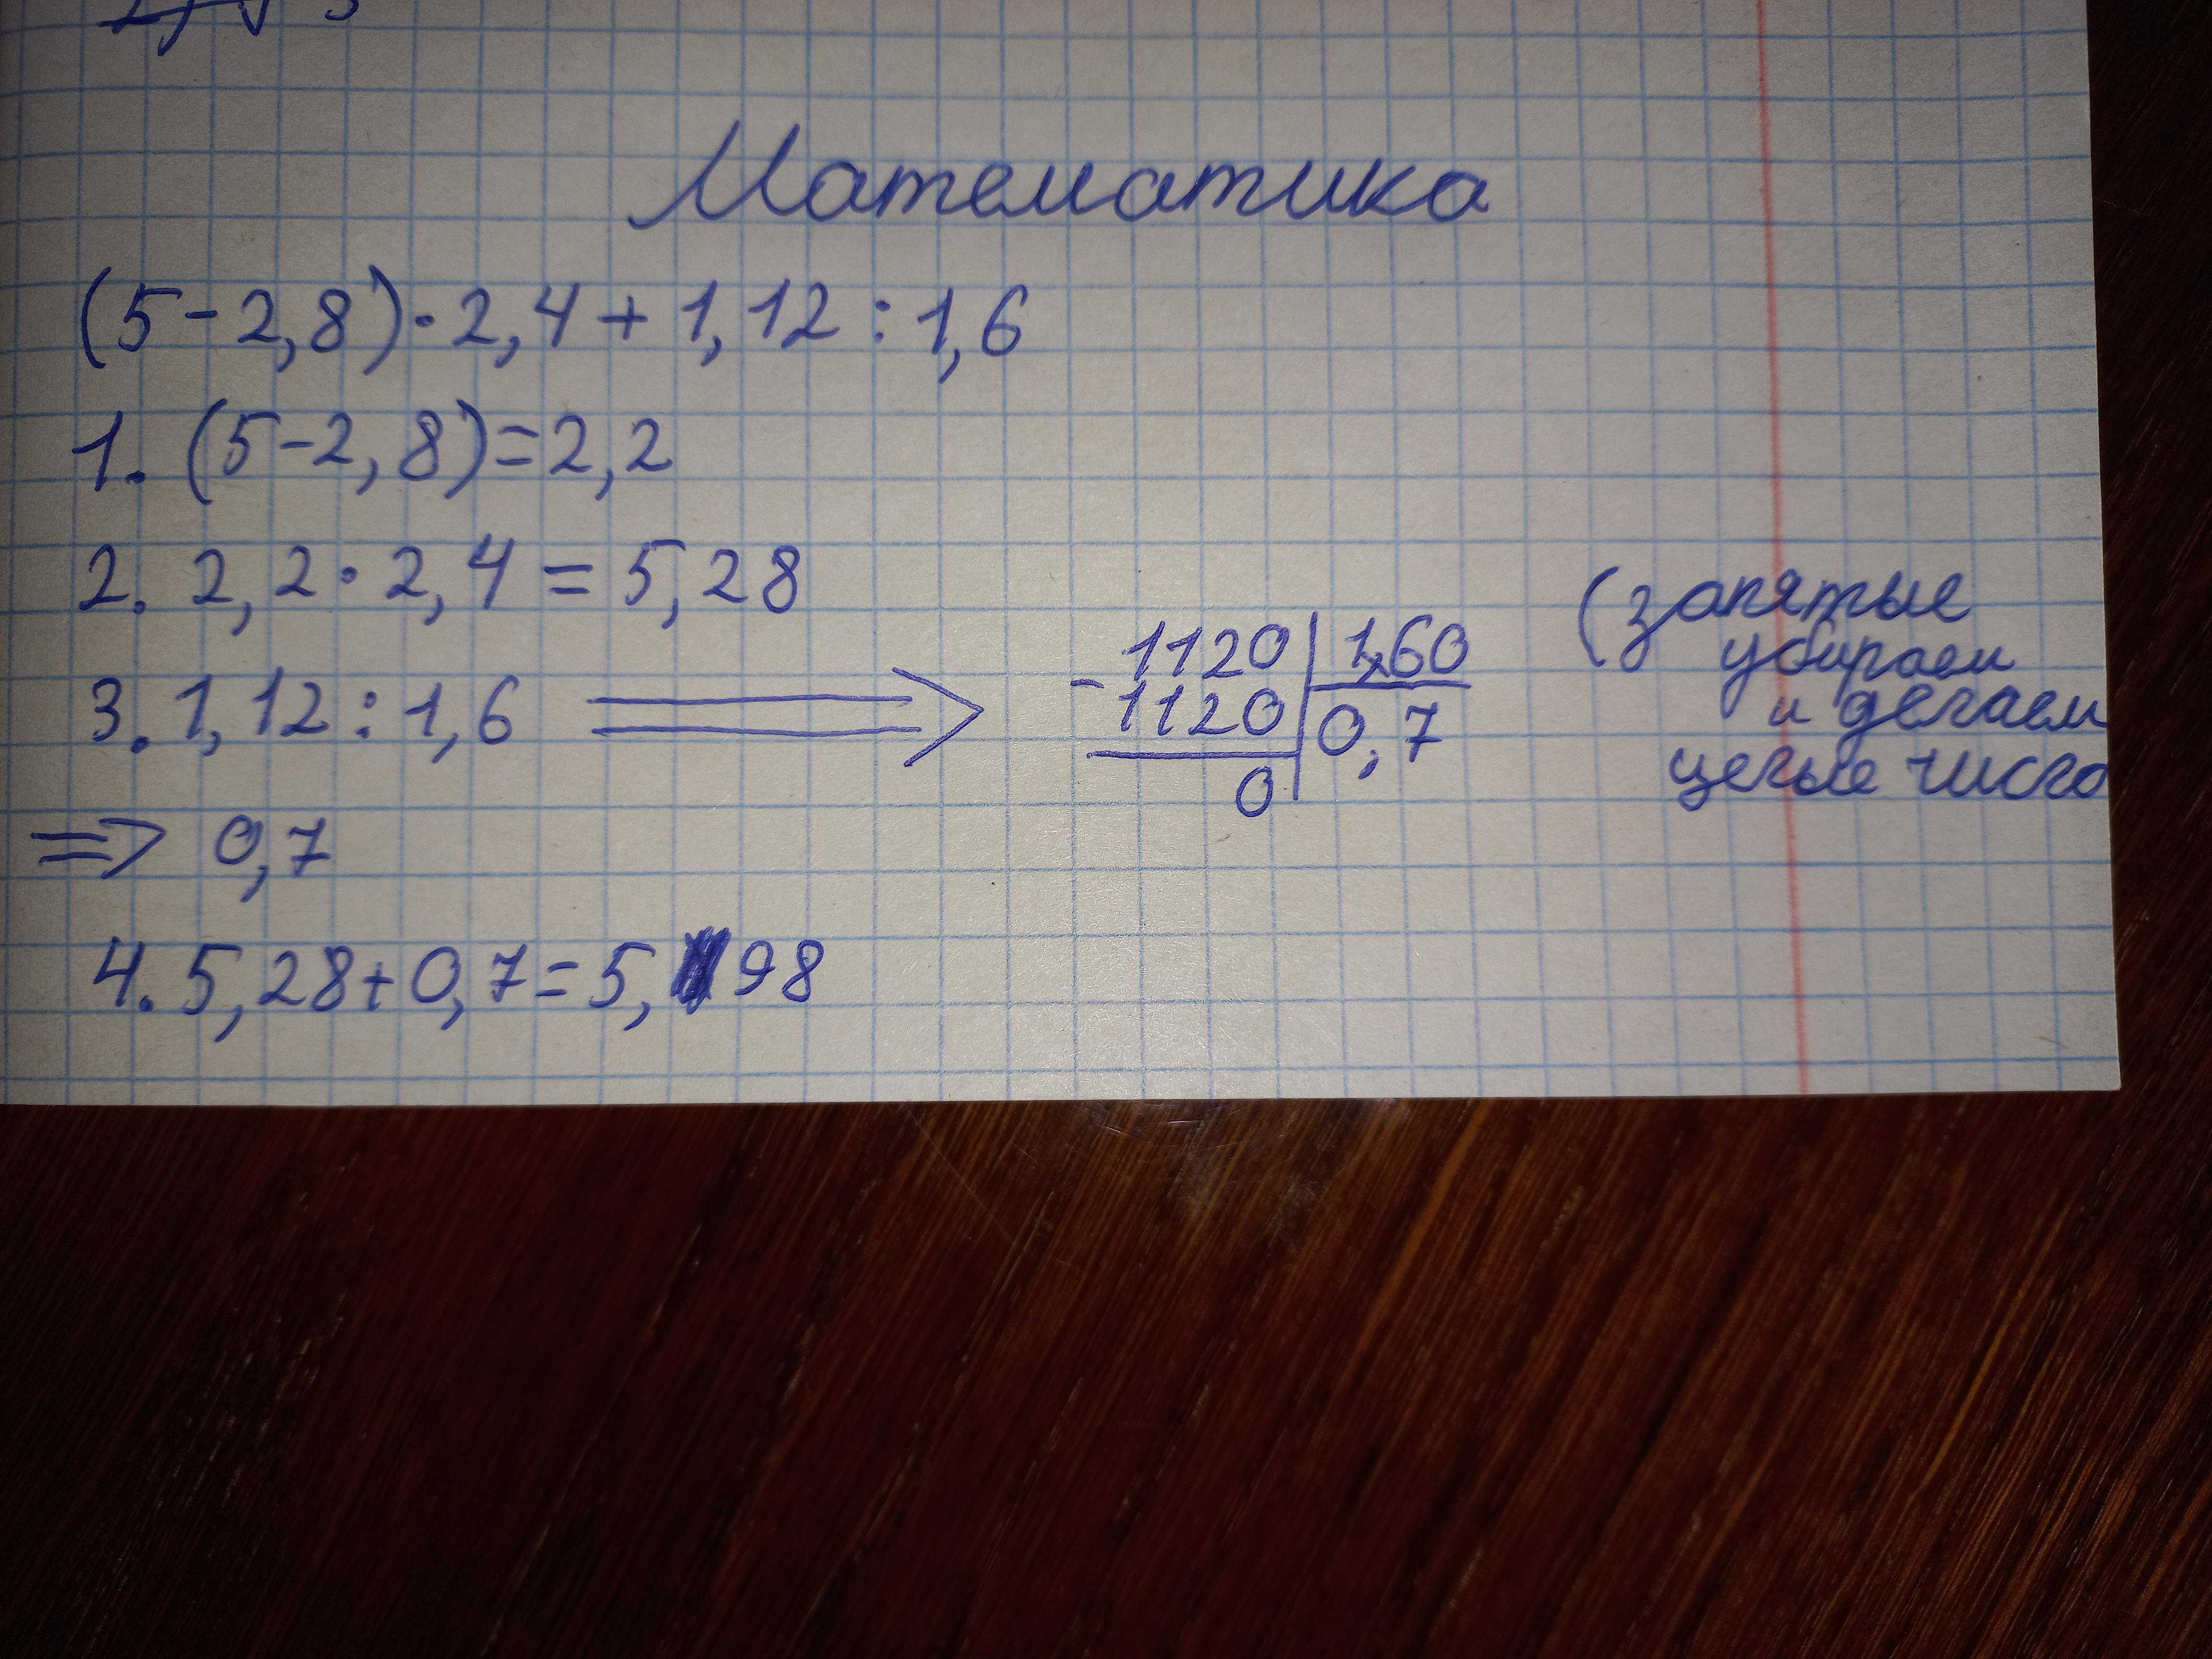 Математика
(5-2,8)·2,4+1,12:1,6
1. (5-2,8)=2,2
2. 2,2·2,4=5,28
3. 1,12:1,6 ⟹
-1120 | 1,60
1120 | 0,7
0
(запятые
убираем
и делаем
целые число
=> 0,7
4. 5,28+0,7=5,98